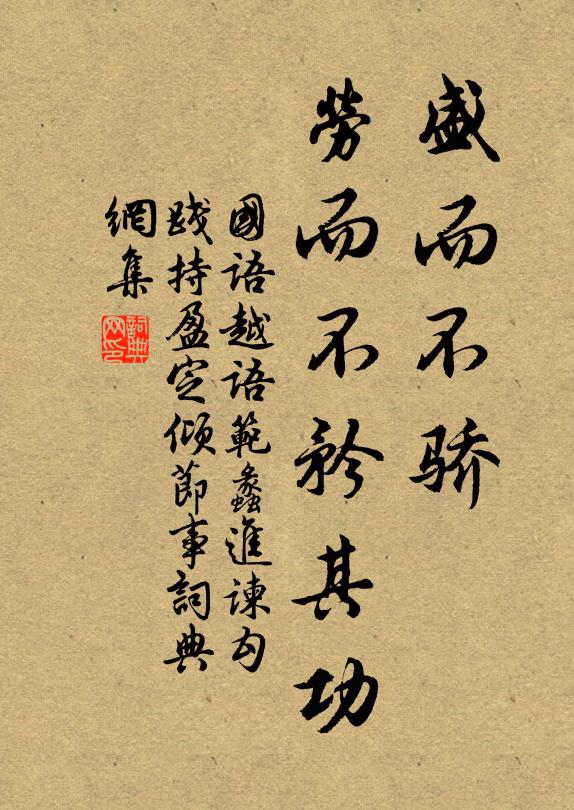 盛而不骄
勞而不矜其功
國语越语範蠡進諫勾
踐持盈定傾節事詞典
網集
詞典
网印